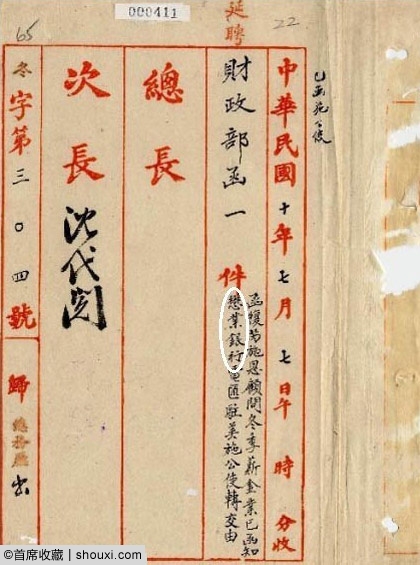 000411
延聘
22
65
已函施公使
中華民國十年七月七日午 時 分收
財政部函一件
函復 施恩顧問冬季薪金業已函知
懋業銀行電匯駐美施公使轉交由
總長
次長 沈代閱
冬字第三〇四號 歸總務廳
首席收藏 | shouxi.com